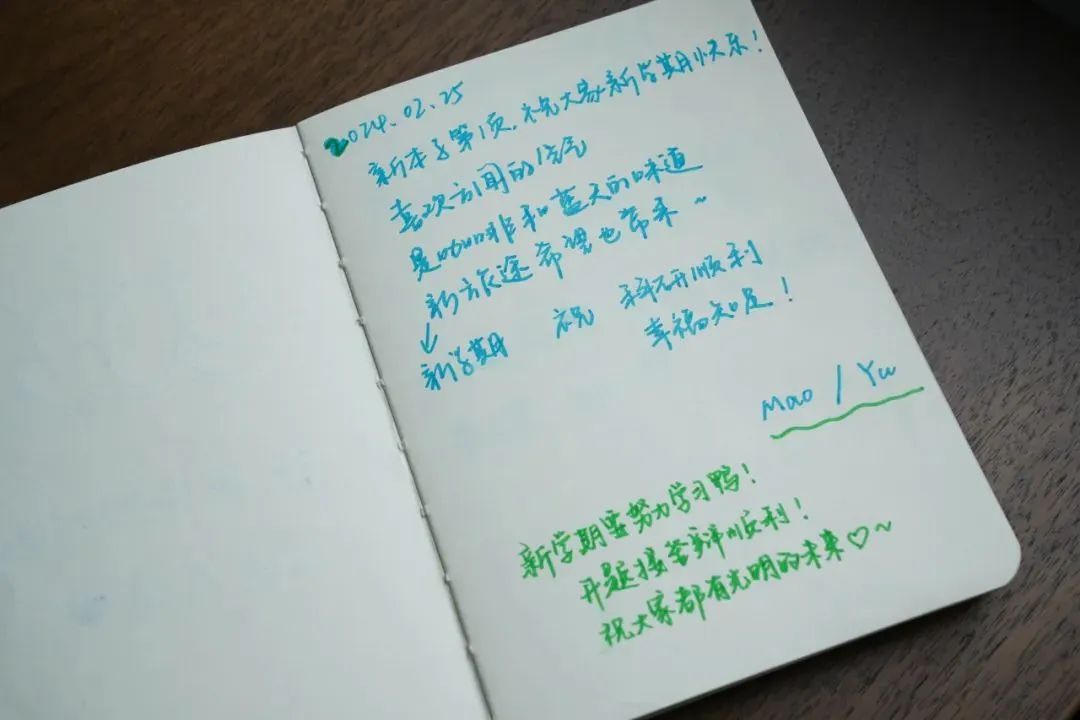 2024.02.25
新本子第1页,祝大家新学期快乐!
喜欢房间的
是咖啡和蓝天的味道
新旅途 希望也常来~
↓
新学期 祝 科研顺利
幸福知足!
Mao / Yu
新学期要努力学习鸭!
开题接答辩顺利!
祝大家都有光明的未来♡~